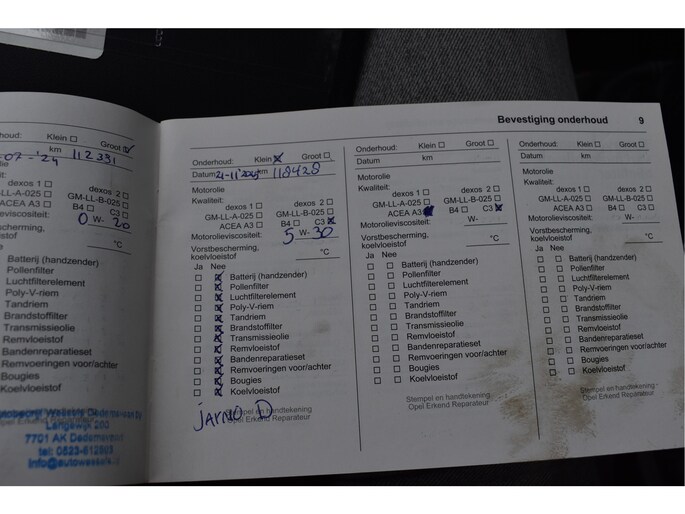 Bevestiging onderhoud 9
houd: Klein ☐ Groot ☑
-07-'24 km 112331
olie
dexos 1 ☐ dexos 2 ☐
LL-A-025 ☐ GM-LL-B-025 ☐
ACEA A3 ☐ B4 ☐ C3 ☐
olieviscositeit: 0 W- 20
bescherming,
oelstof °C
Nee
Batterij (handzender)
Pollenfilter
Luchtfilterelement
Poly-V-riem
Tandriem
Brandstoffilter
Transmissieolie
Remvloeistof
Bandenreparatieset
Remvoeringen voor/achter
Bougies
Koelvloeistof
7701 AK Dedemsvaart
tel: 0523-612803
Onderhoud: Klein ☒ Groot ☐
Datum 21-11 km 118428
Motorolie
Kwaliteit:
dexos 1 ☐ dexos 2 ☐
GM-LL-A-025 ☐ GM-LL-B-025 ☐
ACEA A3 ☐ B4 ☐ C3 ☒
Motorolieviscositeit: 5 W- 30
Vorstbescherming,
koelvloeistof °C
Ja Nee
☐ ☒ Batterij (handzender)
☐ ☒ Pollenfilter
☐ ☒ Luchtfilterelement
☐ ☒ Poly-V-riem
☐ ☒ Tandriem
☐ ☒ Brandstoffilter
☐ ☒ Transmissieolie
☐ ☒ Remvloeistof
☐ ☒ Bandenreparatieset
☐ ☒ Remvoeringen voor/achter
☐ ☒ Bougies
☐ ☒ Koelvloeistof
Stempel en handtekening
Opel Erkend Reparateur
Jarno D
Onderhoud: Klein ☐ Groot ☐
Datum km
Motorolie
Kwaliteit:
dexos 1 ☐ dexos 2 ☐
GM-LL-A-025 ☐ GM-LL-B-025 ☐
ACEA A3 B4 ☐ C3 ☒
Motorolieviscositeit: W-
Vorstbescherming,
koelvloeistof °C
Ja Nee
☐ ☐ Batterij (handzender)
☐ ☐ Pollenfilter
☐ ☐ Luchtfilterelement
☐ ☐ Poly-V-riem
☐ ☐ Tandriem
☐ ☐ Brandstoffilter
☐ ☐ Transmissieolie
☐ ☐ Remvloeistof
☐ ☐ Bandenreparatieset
☐ ☐ Remvoeringen voor/achter
☐ ☐ Bougies
☐ ☐ Koelvloeistof
Stempel en handtekening
Opel Erkend Reparateur
Onderhoud: Klein ☐ Groot ☐
Datum km
Motorolie
Kwaliteit:
dexos 1 ☐ dexos 2 ☐
GM-LL-A-025 ☐ GM-LL-B-025 ☐
ACEA A3 ☐ B4 ☐ C3 ☐
Motorolieviscositeit: W-
Vorstbescherming,
koelvloeistof °C
Ja Nee
☐ ☐ Batterij (handzender)
☐ ☐ Pollenfilter
☐ ☐ Luchtfilterelement
☐ ☐ Poly-V-riem
☐ ☐ Tandriem
☐ ☐ Brandstoffilter
☐ ☐ Transmissieolie
☐ ☐ Remvloeistof
☐ ☐ Bandenreparatieset
☐ ☐ Remvoeringen voor/achter
☐ ☐ Bougies
☐ ☐ Koelvloeistof
Stempel en handtekening
Opel Erkend Reparateur